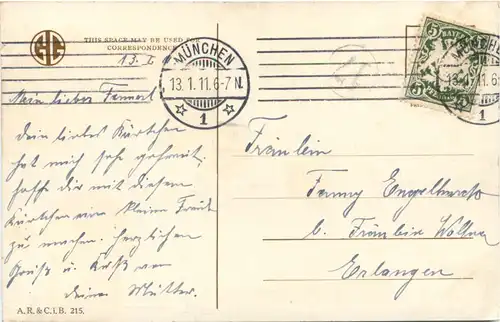 THIS SPACE MAY BE USED FOR
CORRESPONDENCE
MÜNCHEN
13.1.11.6-7 N.
1
BAYERN
5
13. I.
Mein liebes
Dein liebes Kärtchen
hat mich sehr gefreut,
hoffe dir mit diesem
Kärtchen eine kleine Freude
zu machen. Herzlichen
Gruß u. Kuß von
deiner Mutter.
A.R. & C.i.B. 215.
Fräulein
Fanny
b. Fräulein
Erlangen